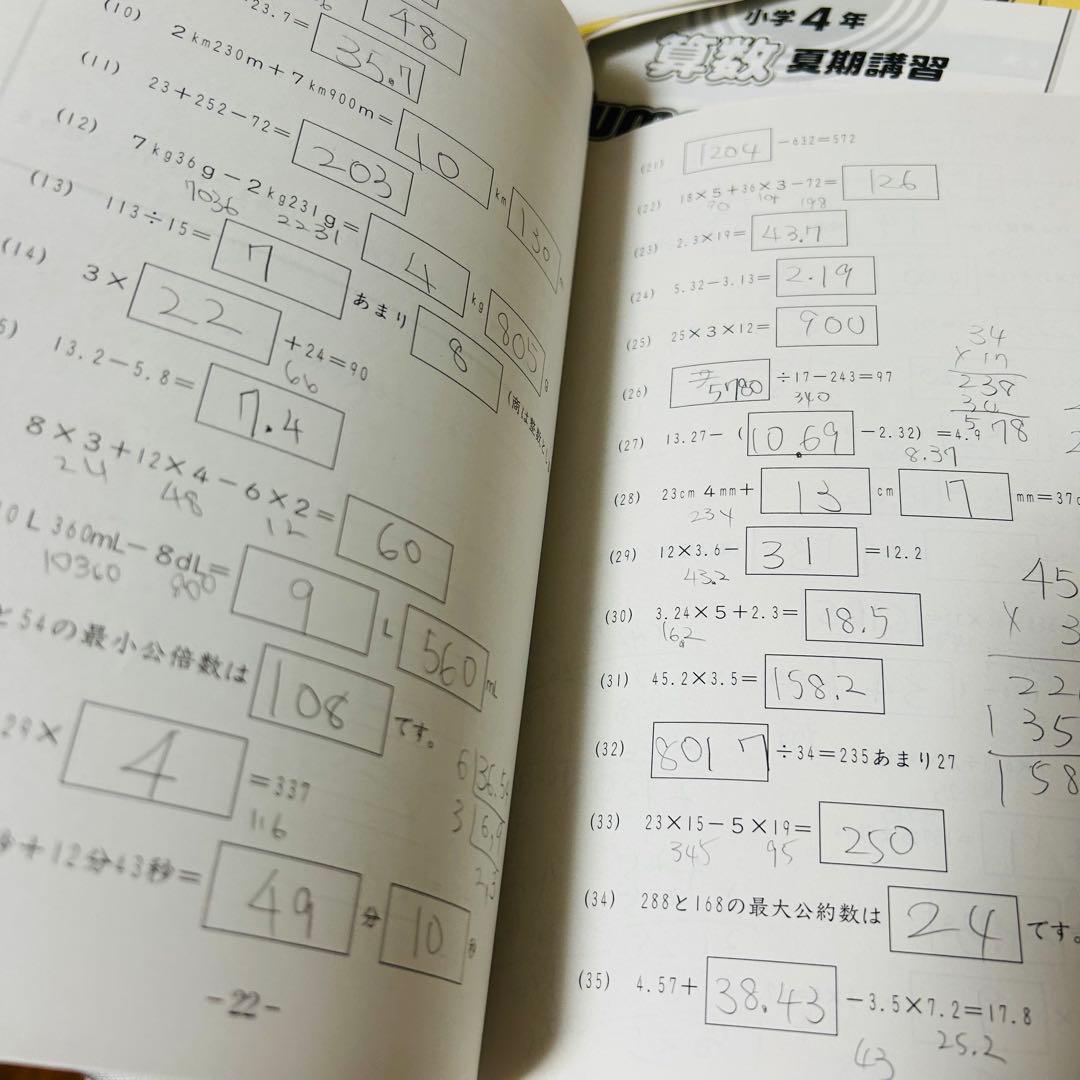 小学4年
算数 夏期講習
48
(10) 23.7= 35.7
2km230m+7km900m= 10 km 130
(11) 23+252-72= 203
(12) 7kg36g-2kg231g= 4 kg 805 g
7036 2231
(13) 113÷15= 7 あまり 8
(14) 3× 22 +24=90
66
13.2-5.8= 7.4
8×3+12×4-6×2= 60
24 48 12
0L360mL-8dL= 9 L 560 mL
10360 800
と54の最小公倍数は 108 です。
6 36.54
3 6.9
29× 4 =337
116
+12分43秒= 49 分 10 秒
-22-
(21) 1204 -632=572
(22) 18×5+36×3-72= 126
90 108 198
(23) 2.3×19= 43.7
(24) 5.32-3.13= 2.19
(25) 25×3×12= 900
34
×17
238
34
578
(26) 5780 ÷17-243=97
340
(27) 13.27-( 10.69 -2.32) =4.9
8.37
(28) 23cm4mm+ 13 cm 7 mm=37c
234
(29) 12×3.6- 31 =12.2
43.2
(30) 3.24×5+2.3= 18.5
16.2
45
× 3
22
135
158
(31) 45.2×3.5= 158.2
(32) 8017 ÷34=235あまり27
(33) 23×15-5×19= 250
345 95
(34) 288と168の最大公約数は 24 です。
(35) 4.57+ 38.43 -3.5×7.2=17.8
43 25.2